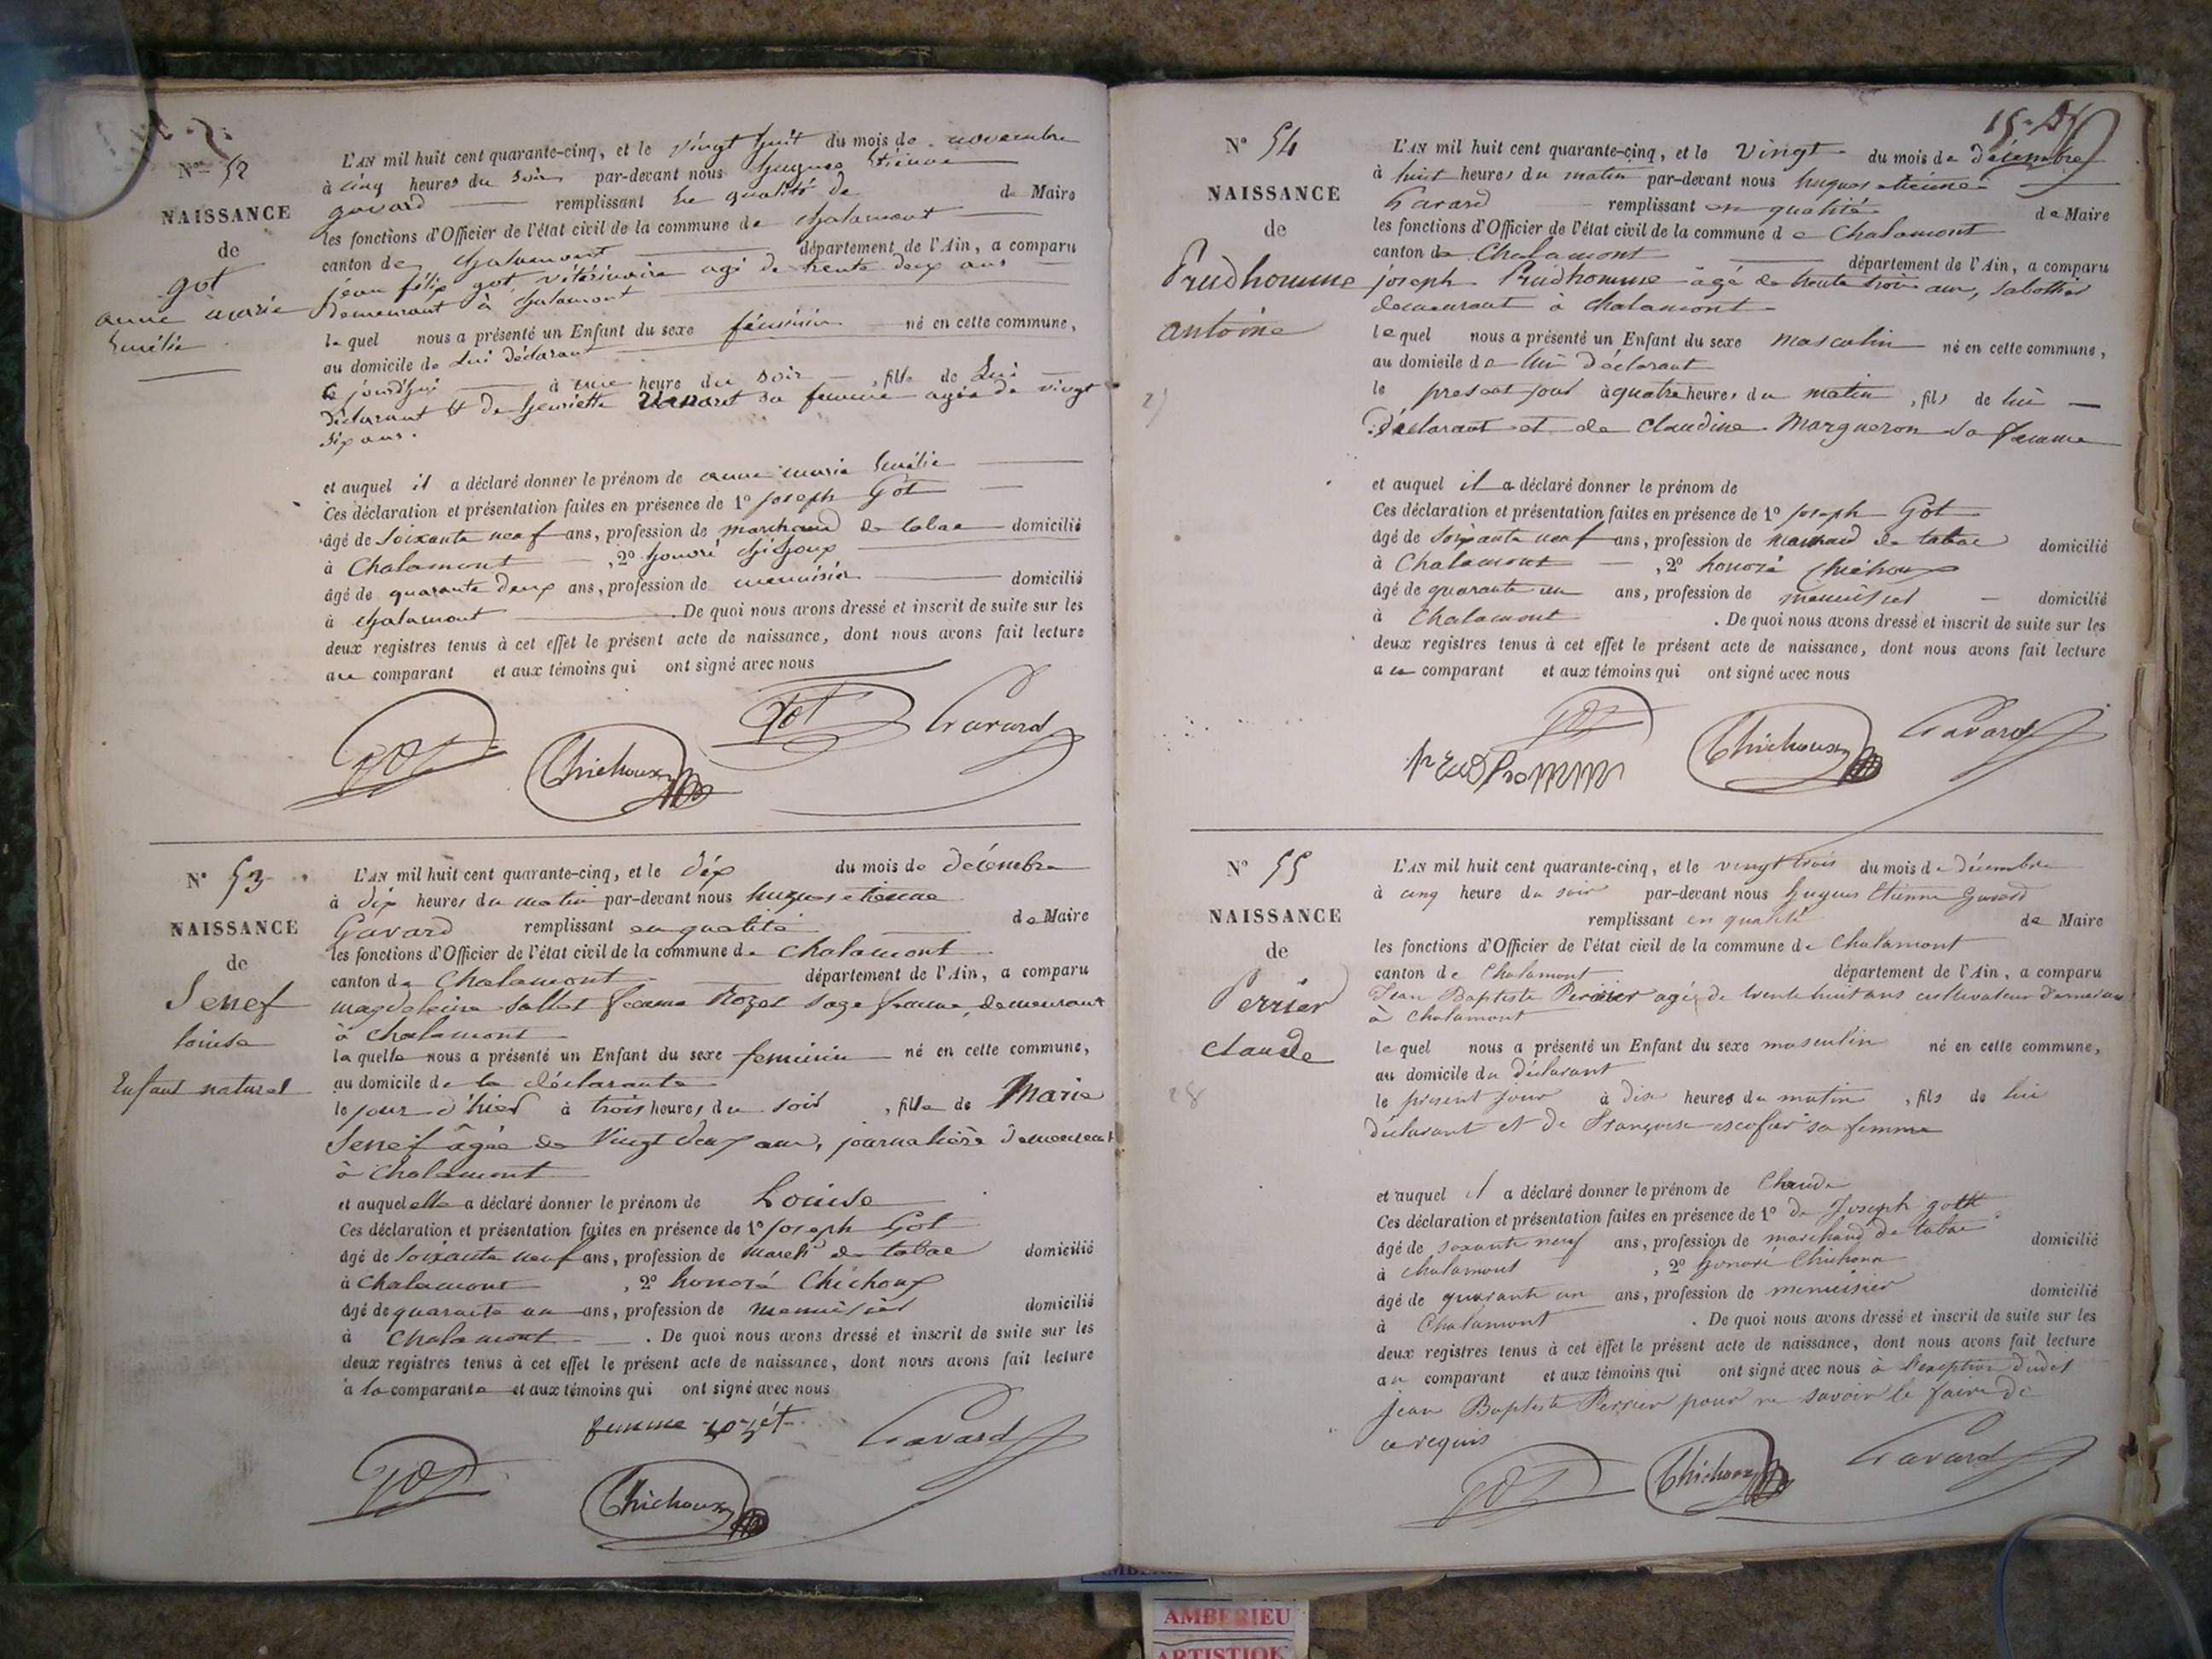 Nº 52
NAISSANCE
de
got
anne marie
Emélie
L'AN mil huit cent quarante-cinq, et le vingt huit du mois de novembre
à cinq heures du soir par-devant nous hugues Etienne
gavard remplissant en qualité de de Maire
les fonctions d'Officier de l'état civil de la commune de chalamont
canton de chalamont département de l'Ain, a comparu
jean félix got, vétérinaire agé de trente deux ans
demeurant à chalamont
lequel nous a présenté un Enfant du sexe féminin né en cette commune,
au domicile de lui déclarant
ce jourd'hui à une heure du soir, fille de lui
déclarant et de henriette sa femme agée de vingt
six ans.
et auquel il a déclaré donner le prénom de anne marie Emélie
Ces déclaration et présentation faites en présence de 1º joseph Got
âgé de soixante neuf ans, profession de marchand de tabac domicilié
à Chalamont, 2º honoré chichoux
âgé de quarante deux ans, profession de menuisier domicilié
à chalamont. De quoi nous avons dressé et inscrit de suite sur les
deux registres tenus à cet effet le présent acte de naissance, dont nous avons fait lecture
au comparant et aux témoins qui ont signé avec nous
got Chichoux Got Gavard
Nº 53
NAISSANCE
de
Senef
louise
Enfant naturel
L'AN mil huit cent quarante-cinq, et le dix du mois de décembre
à dix heures du matin par-devant nous hugues etienne
Gavard remplissant en qualité de Maire
les fonctions d'Officier de l'état civil de la commune de chalamont
canton de Chalamont département de l'Ain, a comparu
magdeleine Sallet femme Rozet sage femme, demeurant
à chalamont
laquelle nous a présenté un Enfant du sexe feminin né en cette commune,
au domicile de la déclarante
le jour d'hier à trois heures du soir, fille de Marie
Senef âgée de Vingt deux ans, journalière demeurant
à chalamont
et auquel elle a déclaré donner le prénom de Louise
Ces déclaration et présentation faites en présence de 1º joseph Got
âgé de soixante neuf ans, profession de march^d de tabac domicilié
à Chalamont, 2º honoré Chichoux
âgé de quarante un ans, profession de menuisier domicilié
à Chalamont. De quoi nous avons dressé et inscrit de suite sur les
deux registres tenus à cet effet le présent acte de naissance, dont nous avons fait lecture
à la comparante et aux témoins qui ont signé avec nous
femme rozét Gavard
got Chichoux
Nº 54
NAISSANCE
de
Prudhomme
antoine
L'AN mil huit cent quarante-cinq, et le vingt du mois de décembre
à huit heures du matin par-devant nous hugues etienne
Gavard remplissant en qualité de Maire
les fonctions d'Officier de l'état civil de la commune de Chalamont
canton de Chalamont département de l'Ain, a comparu
joseph Prudhomme âgé de trente trois ans, sabottier
demeurant à chalamont
lequel nous a présenté un Enfant du sexe masculin né en cette commune,
au domicile de lui déclarant
le present jour à quatre heures du matin, fils de lui
déclarant et de Claudine Margueron sa femme
et auquel il a déclaré donner le prénom de
Ces déclaration et présentation faites en présence de 1º joseph Got
âgé de soixante neuf ans, profession de marchand de tabac domicilié
à Chalamont, 2º honoré Chichoux
âgé de quarante un ans, profession de menuisier domicilié
à Chalamont. De quoi nous avons dressé et inscrit de suite sur les
deux registres tenus à cet effet le présent acte de naissance, dont nous avons fait lecture
au comparant et aux témoins qui ont signé avec nous
got Gavard
Chichoux
Nº 55
NAISSANCE
de
Perrier
claude
28
L'AN mil huit cent quarante-cinq, et le vingt trois du mois de décembre
à cinq heure du soir par-devant nous hugues Etienne Gavard
remplissant en qualité de Maire
les fonctions d'Officier de l'état civil de la commune de Chalamont
canton de Chalamont département de l'Ain, a comparu
Jean Baptiste Perrier agé de trente huit ans cultivateur demeurant
à Chalamont
lequel nous a présenté un Enfant du sexe masculin né en cette commune,
au domicile du déclarant
le présent jour à dix heures du matin, fils de lui
déclarant et de Françoise escofier sa femme
et auquel il a déclaré donner le prénom de Claude
Ces déclaration et présentation faites en présence de 1º de Joseph gott
âgé de soxante neuf ans, profession de marchand de tabac domicilié
à chalamont, 2º honoré Chichoux
âgé de quarante un ans, profession de menuisier domicilié
à Chalamont. De quoi nous avons dressé et inscrit de suite sur les
deux registres tenus à cet effet le présent acte de naissance, dont nous avons fait lecture
au comparant et aux témoins qui ont signé avec nous à l'exception dudit
jean Baptiste Perrier pour ne savoir le faire de
ce requis
got Chichoux Gavard
AMBERIEU
ARTISTIQUE